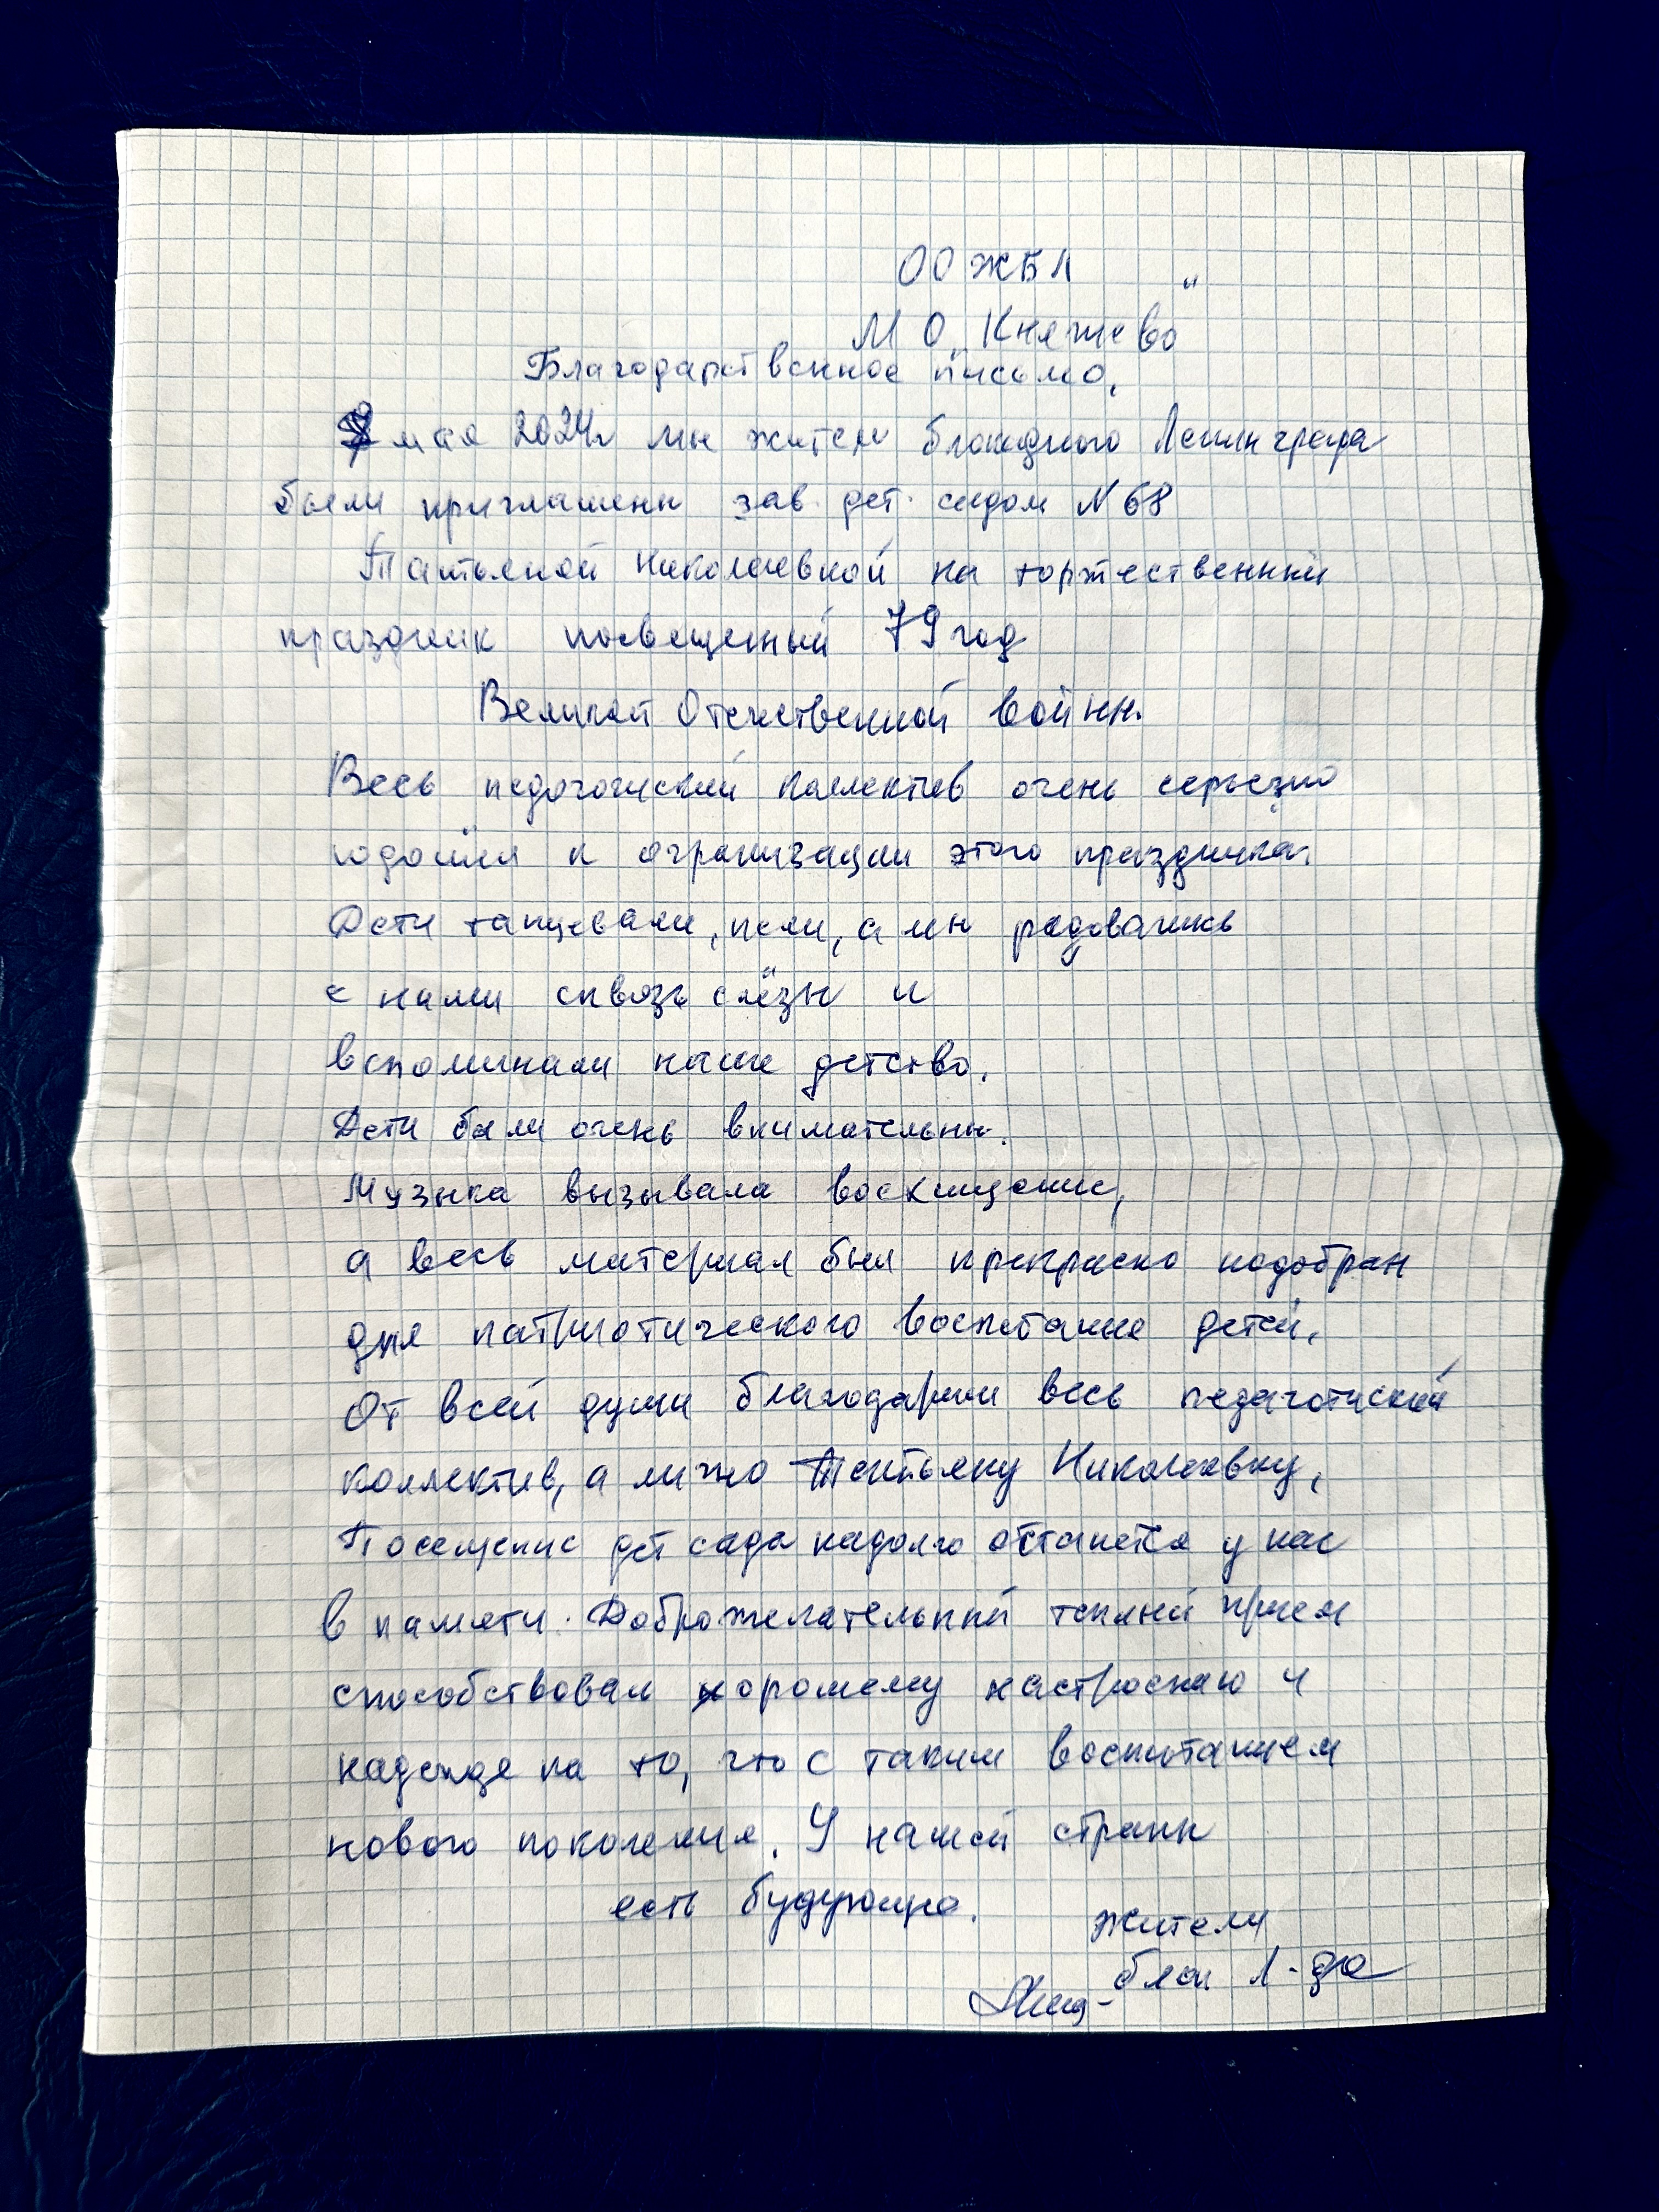 ООЖБЛ
М О „Княжево"
Благодарственное письмо.
мая 2024г мы жители блокадного Ленинграда
были приглашены зав. дет. садом N 68
Татьяной Николаевной на торжественный
праздник посвещенный 79 год
Великой Отечественной войны.
Весь педогогиский коллектив очень серьезно
подошёл к огранизации этого праздника.
Дети танцевали, пели, а мы радовались
с нами сквозь слёзы и
вспоминали наше детство.
Дети были очень внимательны.
Музыка вызывала восхищение,
а весь материал был прекрасно подобран
для патриотического воспитание детей.
От всей души благодарим весь педагогиский
коллектив, а лично Татьяну Николаевну,
Посещение дет сада надолго останется у нас
в памяти. Доброжелательный теплый прием
способствовал хорошему настроению и
надежде на то, что с таким воспитанием
нового поколения. У нашей страны
есть будующее.
жители
блок. Л-да